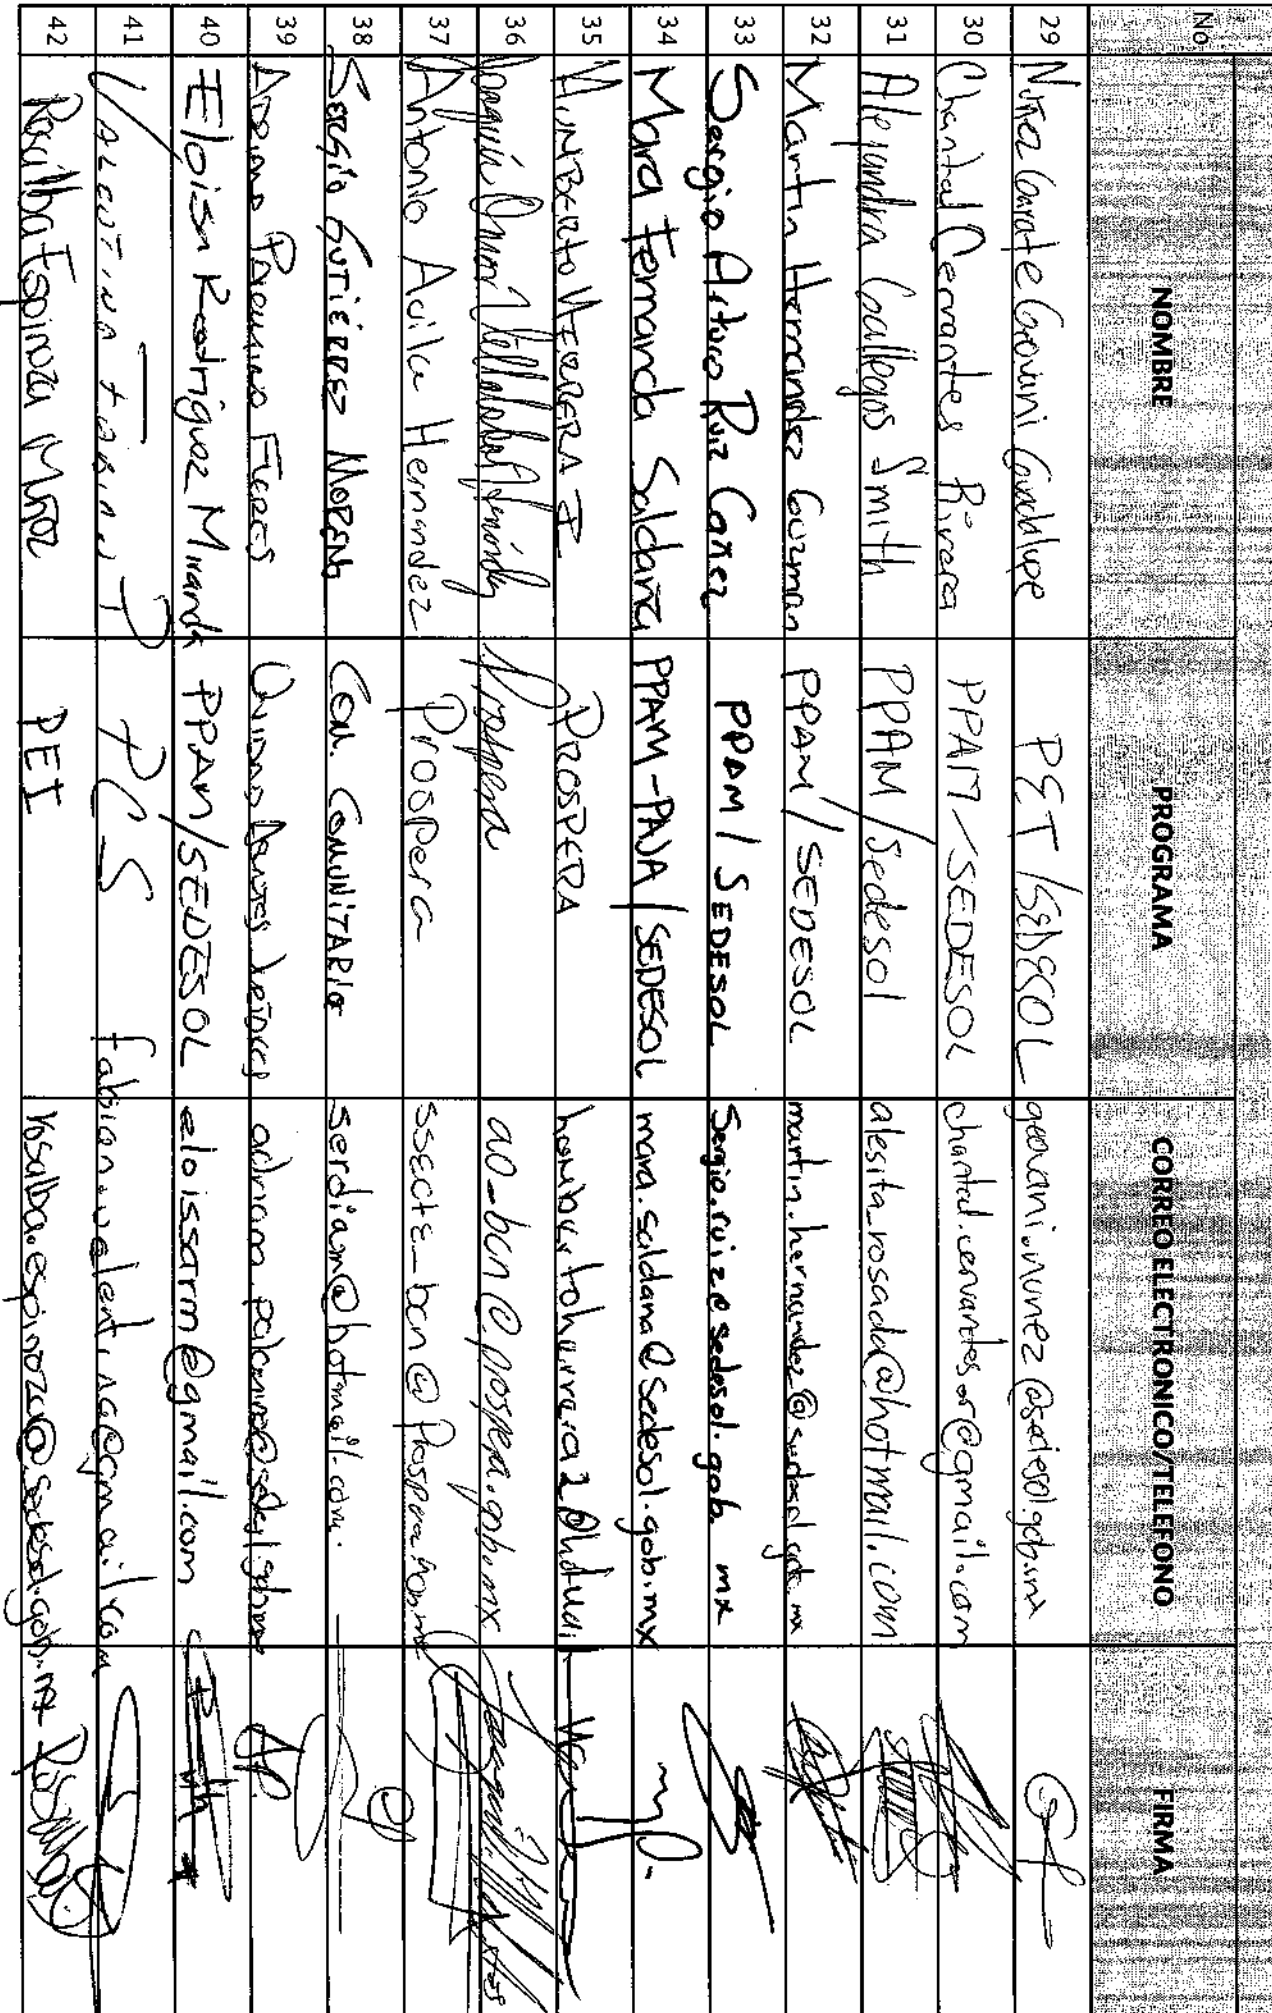 No. NOMBRE PROGRAMA CORREO ELECTRONICO/TELEFONO FIRMA
29 Nuñez Garate Geovani Guadalupe PET / SEDESOL geovani.nunez@sedesol.gob.mx
30 Chantal Cervantes Rivera PPAM / SEDESOL chantal.cervantes.or@gmail.com
31 Alejandra Gallegos Smith PPAM / Sedesol alesita_rosada@hotmail.com
32 Martin Hernandez Guzman PPAM / SEDESOL martin.hernandez@sedesol.gob.mx
33 Sergio Arturo Ruiz Gomez PPAM / SEDESOL Sergio.ruiz@sedesol.gob.mx
34 Mara Fernanda Saldaña PPAM-PAJA / SEDESOL mara.saldana@sedesol.gob.mx
35 HUMBERTO HERRERA PROSPERA
36 Joaquin Prospera ao_bcn@prospera.gob.mx
37 Antonio Avila Hernandez Prospera
38 SERGIO GUTIÉRREZ MORENO COM. COMUNITARIO serdiam@hotmail.com
39
40 Eloisa Rodriguez Miranda PPAM/SEDESOL eloissarm@gmail.com
41 PCS
42 Rosalba Espinoza Muñoz PEI rosalba.espinoza@sedesol.gob.mx